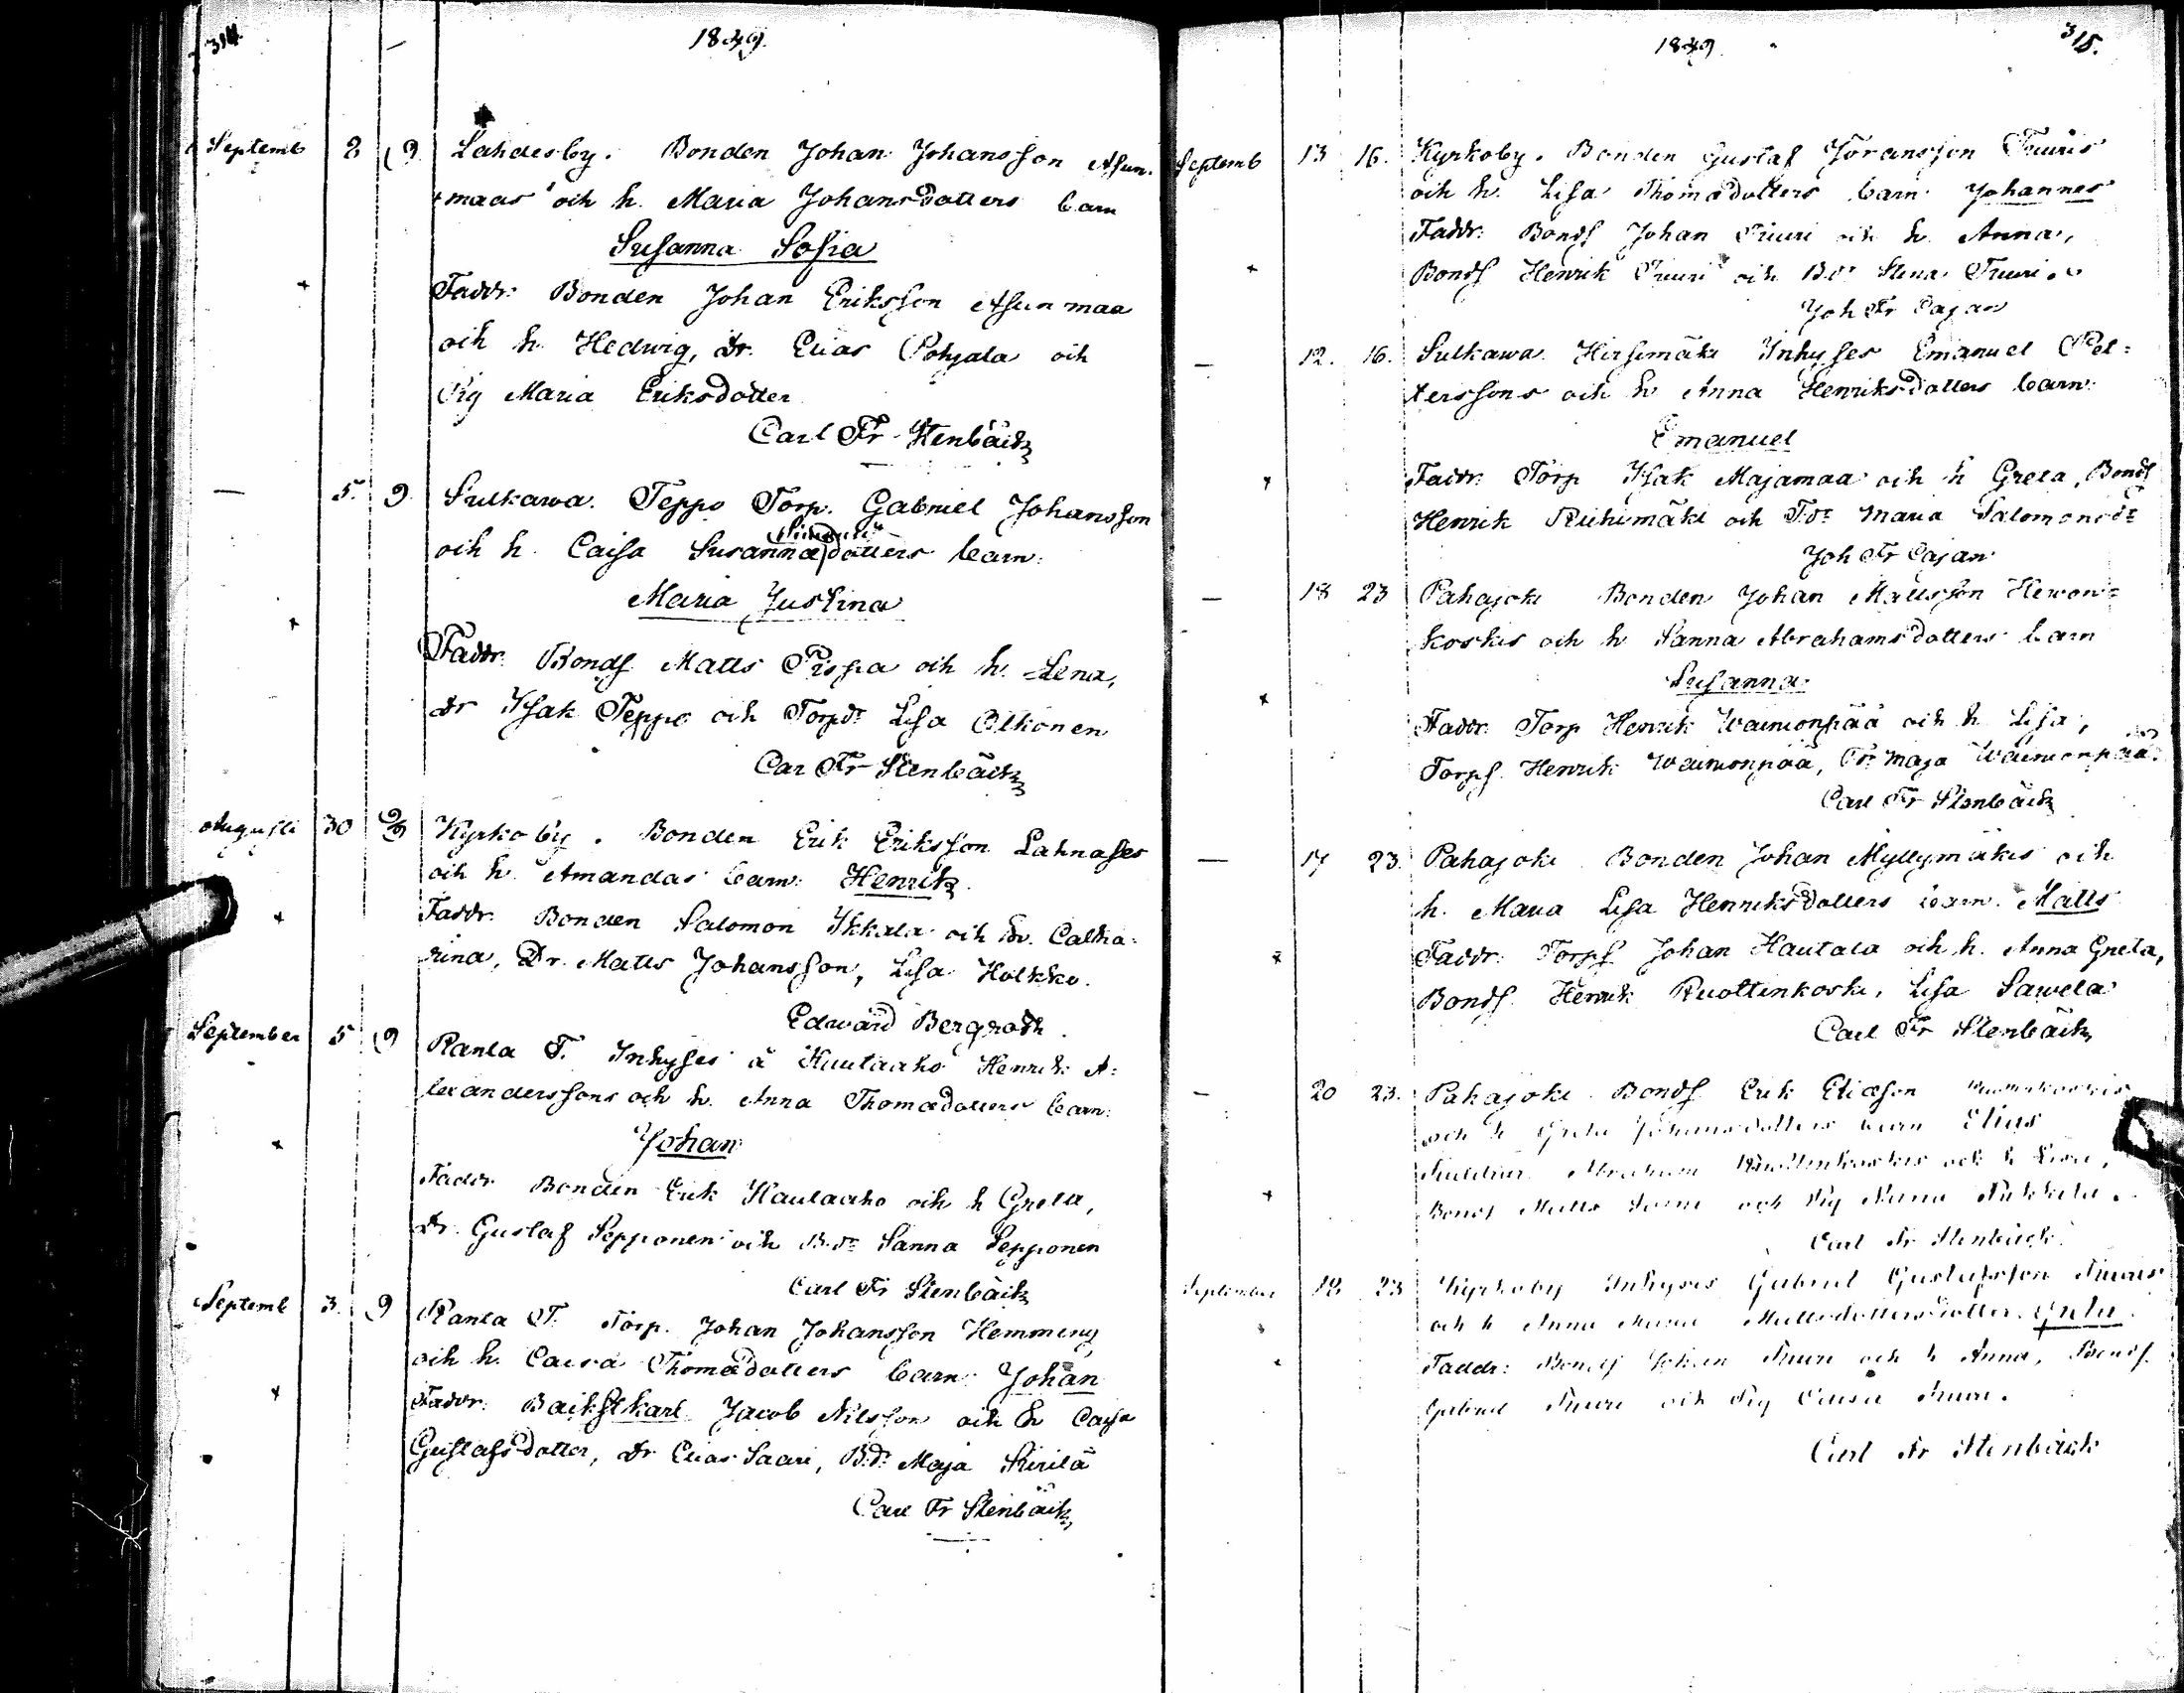 314.
1849.
Septemb 2 9 Lahdesby. Bonden Johan Johansson Asun-
maas och h. Maria Johansdotters barn
Susanna Sofia
Faddr: Bonden Johan Eriksson Asunmaa
och h. Hedwig, Dr. Elias Pohjala och
Pig Maria Eriksdotter
Carl Fr Stenbäck
— 5. 9 Sulkawa. Teppo Torp. Gabriel Johansson
och h. Caisa Susannædotters barn:
Maria Justina
Faddr. Bonds Matts Pispa och h. Lena,
Dr Isak Teppo och Torpdr Lisa Olkonen
Car Fr Stenbäck
Augusti 30 9/9 Kyrkoby. Bonden Erik Eriksson Lahnases
och h. Amandas barn: Henrik.
Faddr. Bonden Salomon Ikkala och h. Catha-
rina, Dr. Matts Johansson, Lisa Holkko.
Edward Bergroth.
September 5 9 Ranta T. Inhyses å Hautaaho Henrik A-
lexanderssons och h. Anna Thomædotters barn:
Johan
Faddr Bonden Erik Hautaaho och h Greta,
Dr. Gustaf Sepponen och B.dr Sanna Sepponen
Carl Fr Stenbäck
Septemb 3. 9 Ranta T. Torp. Johan Johansson Hemming
och h. Caisa Thomædotters barn: Johan
Faddr: Backstkarl Jacob Nilsson och h Caisa
Gustafsdotter, Dr Elias Saari, B.dr Maja
Carl Fr Stenbäck
315.
1849.
Septemb 13 16. Kyrkoby. Bonden Gustaf Göransson Tuuris
och h. Lisa Thomædotters barn Johannes
Faddr: Bonds Johan Tuuri och h. Anna,
Bonds Henrik Tuuri och B.dr Stina Tuuri.
Joh Fr Cajan
— 12. 16. Sulkawa. Hirsimäki Inhyses Emanuel Pet-
terssons och h Anna Henriksdotters barn:
Emanuel
Faddr. Torp Isak Majamaa och h Greta, Bonds
Henrik Riihimäki och T.dr Maria Salomonsdr
Joh Fr Cajan
— 18 23 Pahajoki Bonden Johan Mattsson Hewon-
koskis och h Sanna Abrahamsdotters barn
Susanna
Faddr. Torp Henrik Wainionpää och h Lisa,
Torps. Henrik Wainionpää, Maja Wainionpää.
Carl Fr Stenbäck
— 17 23. Pahajoki Bonden Johan Myllymäkis och
h. Maria Lisa Henriksdotters barn. Matts
Faddr: Torps Johan Hautala och h. Anna Greta,
Bonds. Henrik Ruottinkoski, Lisa Sawela
Carl Fr Stenbäck
— 20 23. Pahajoki Bonds Erik Eliæson
och h Greta Johansdotters barn Elias
Abraham Ruottinkoskis och h Lisa,
Bonds Matts och Pig
Carl Fr Stenbäck.
September 18 23 Kyrkoby Inhyses Gabriel Gustafsson Tuuris
och h Anna Maria Mattsdotters dotter. Greta.
Faddr: Bonds Johan Tuuri och h Anna, Bonds.
Gabriel Tuuri och Pig Caisa Tuuri.
Carl Fr Stenbäck